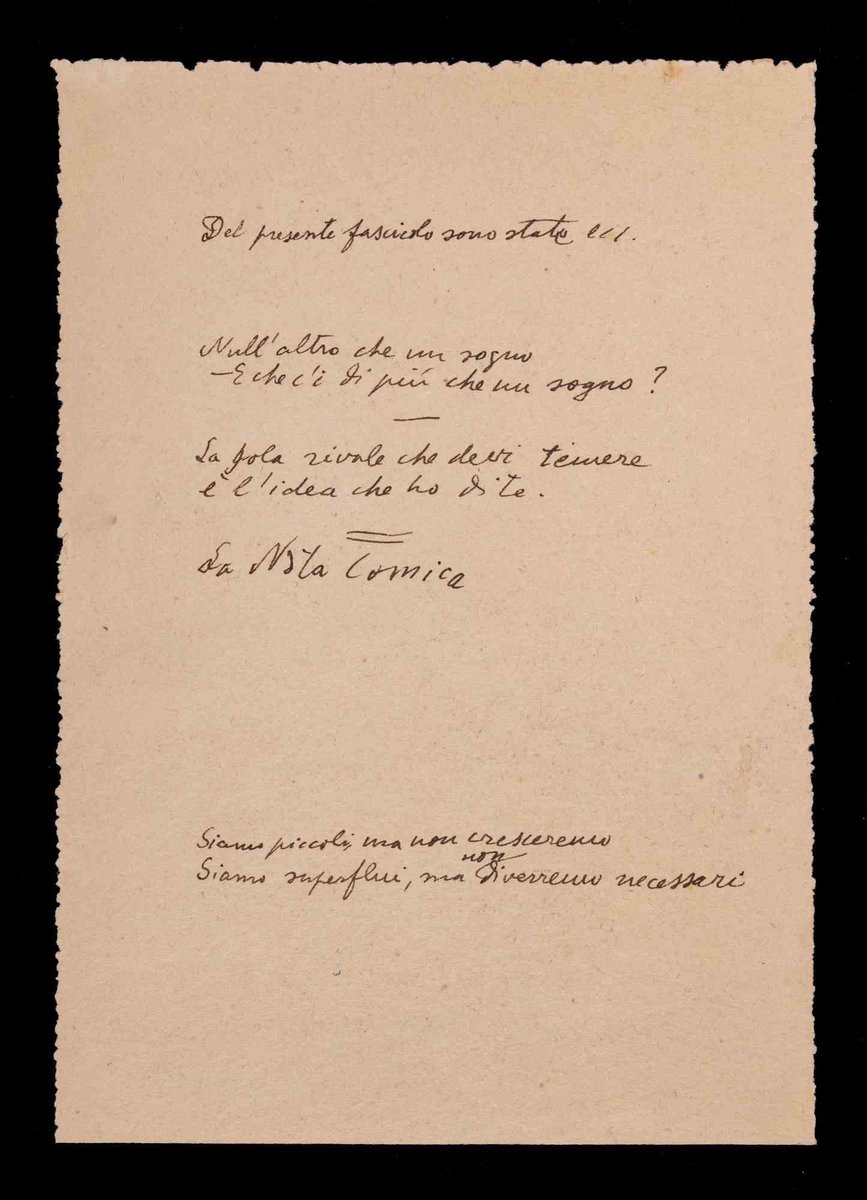 Del presente fascicolo sono state
Null'altro che un sogno
— E che c'è di più che un sogno?
La sola rivale che devi temere
è l'idea che ho di te.
La Nota Comica
Siamo piccoli, ma non cresceremo
Siamo superflui, ma non diverremo necessari